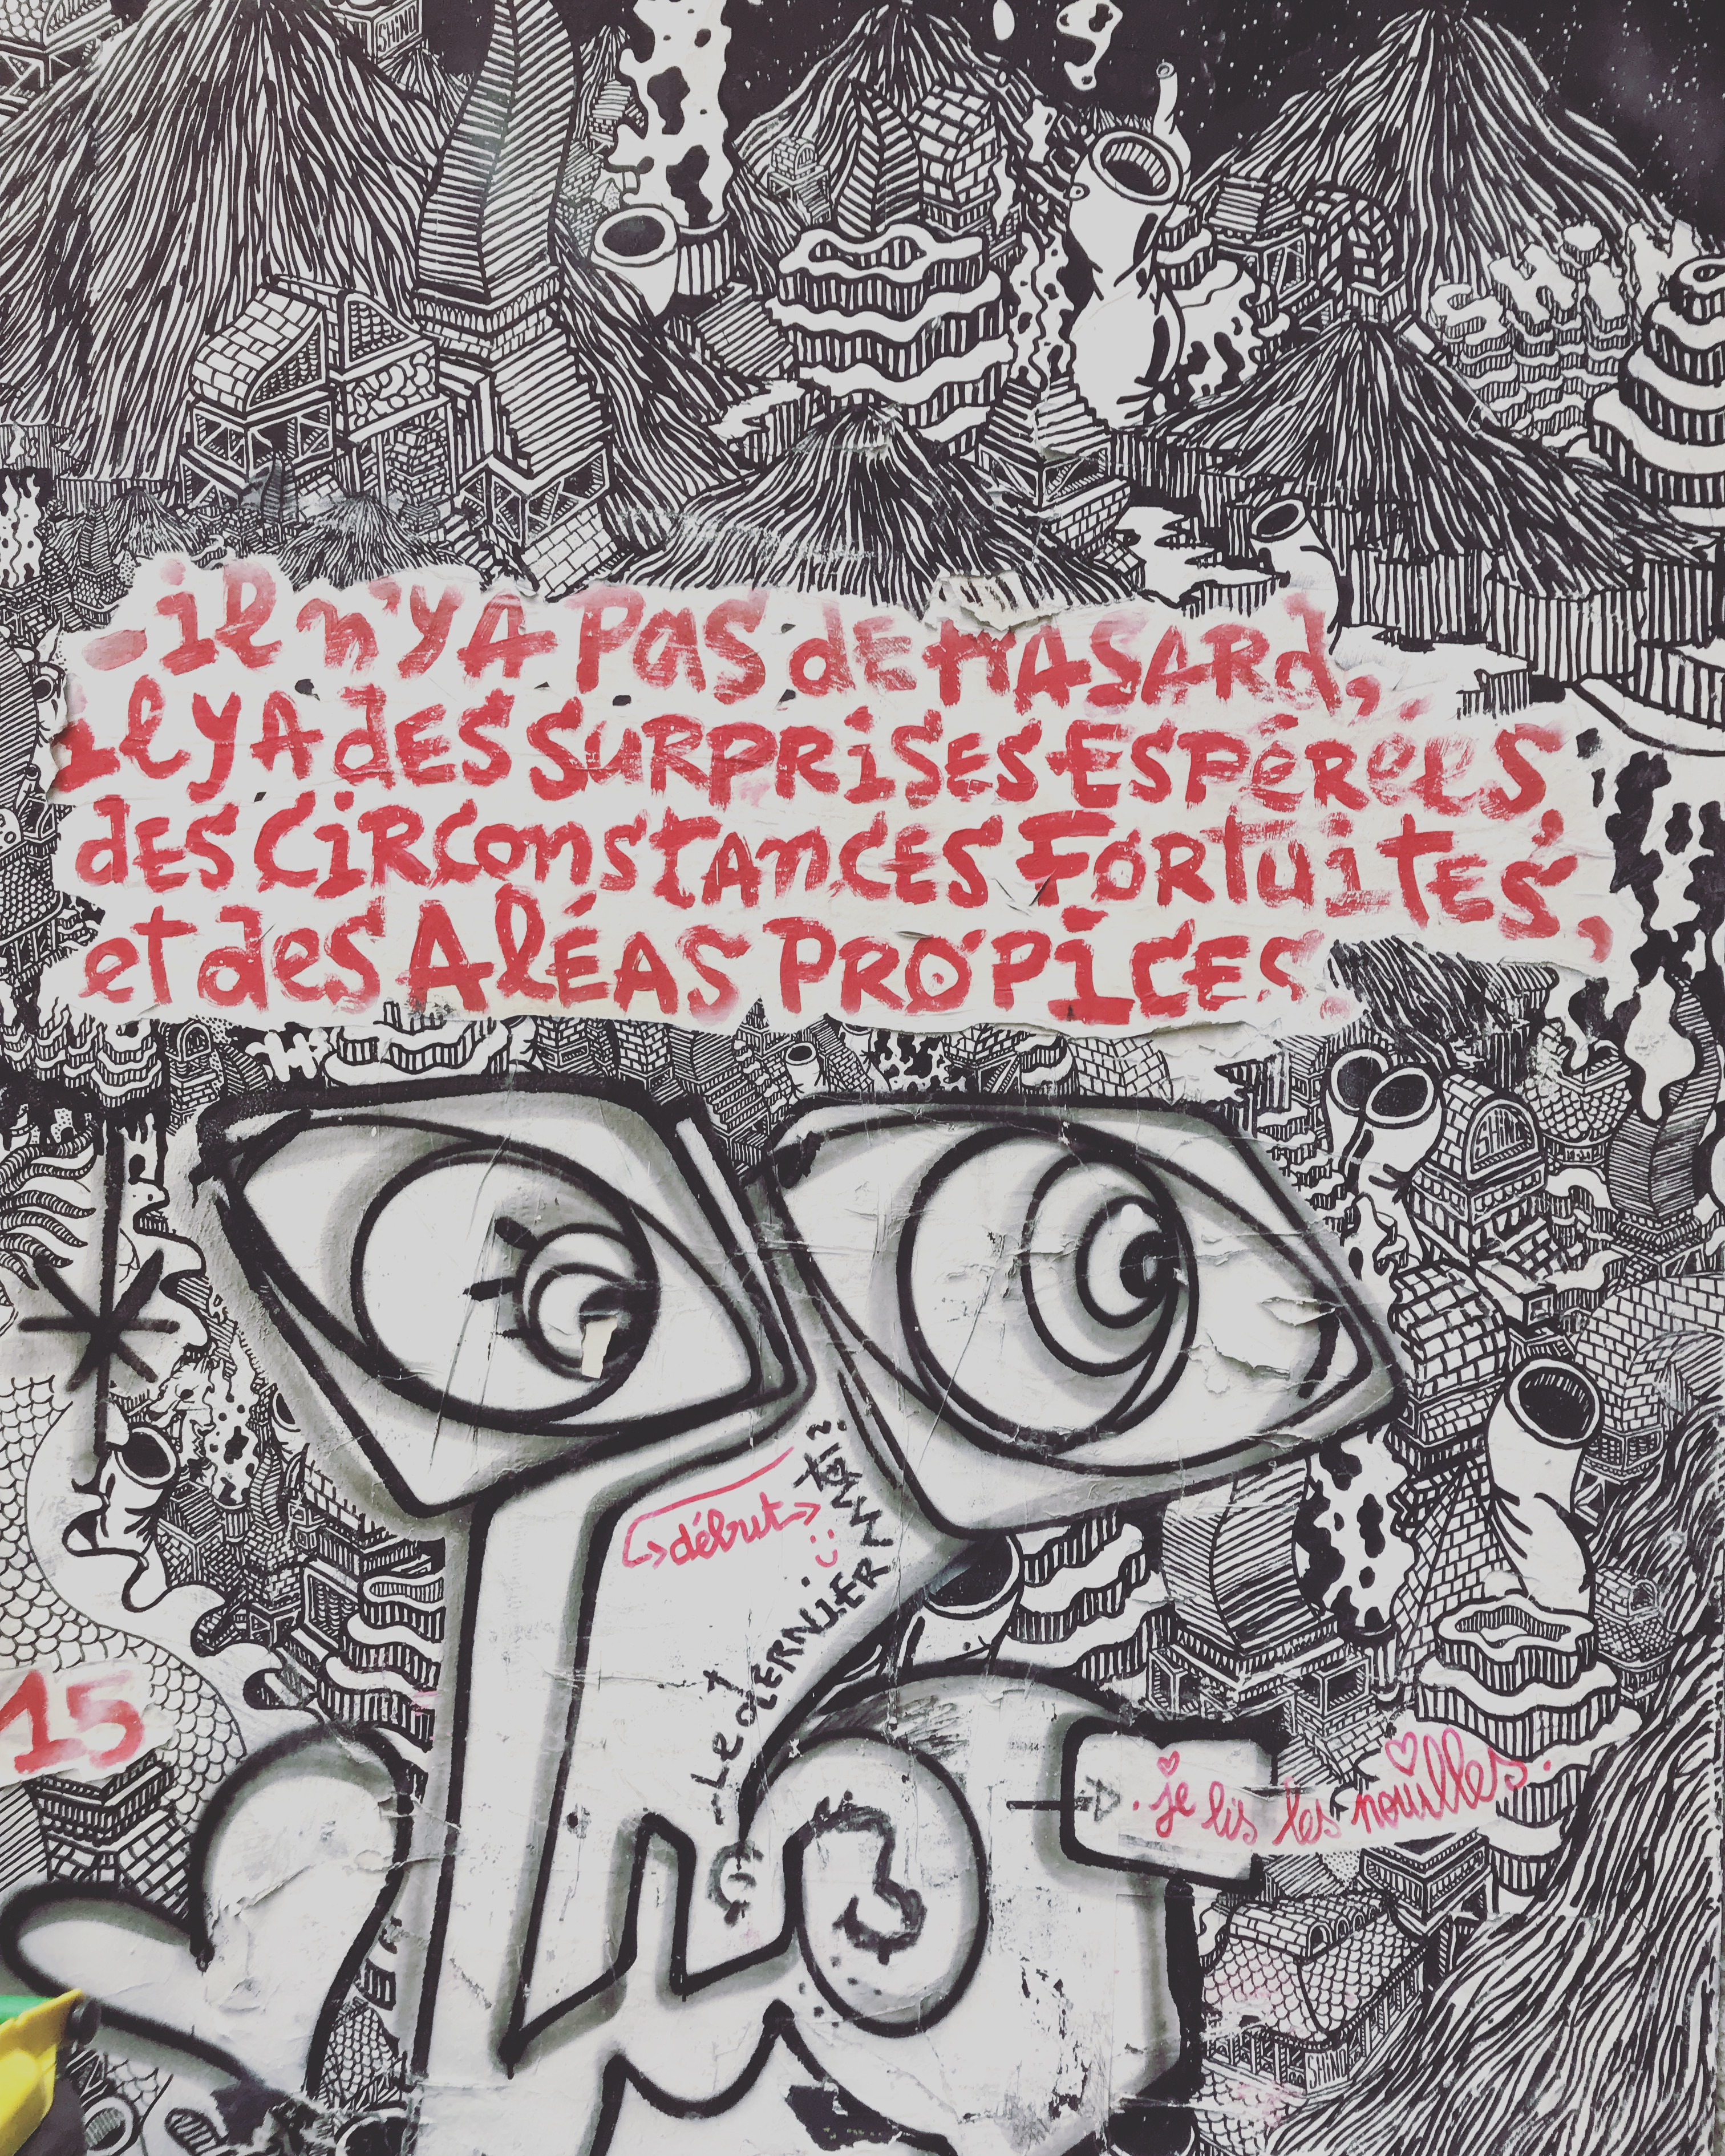 SHINO
SHINO
-il n'y A PAS dE HASARd,
il y A dES SURPRiSES ESPÉRéES,
dES CiRConstAnCES FORtuitES,
et des AléAS PROPiCES.
SHINO
début
toi ?
-Le dERNiER
15
. je lis les nouilles.
SHINO